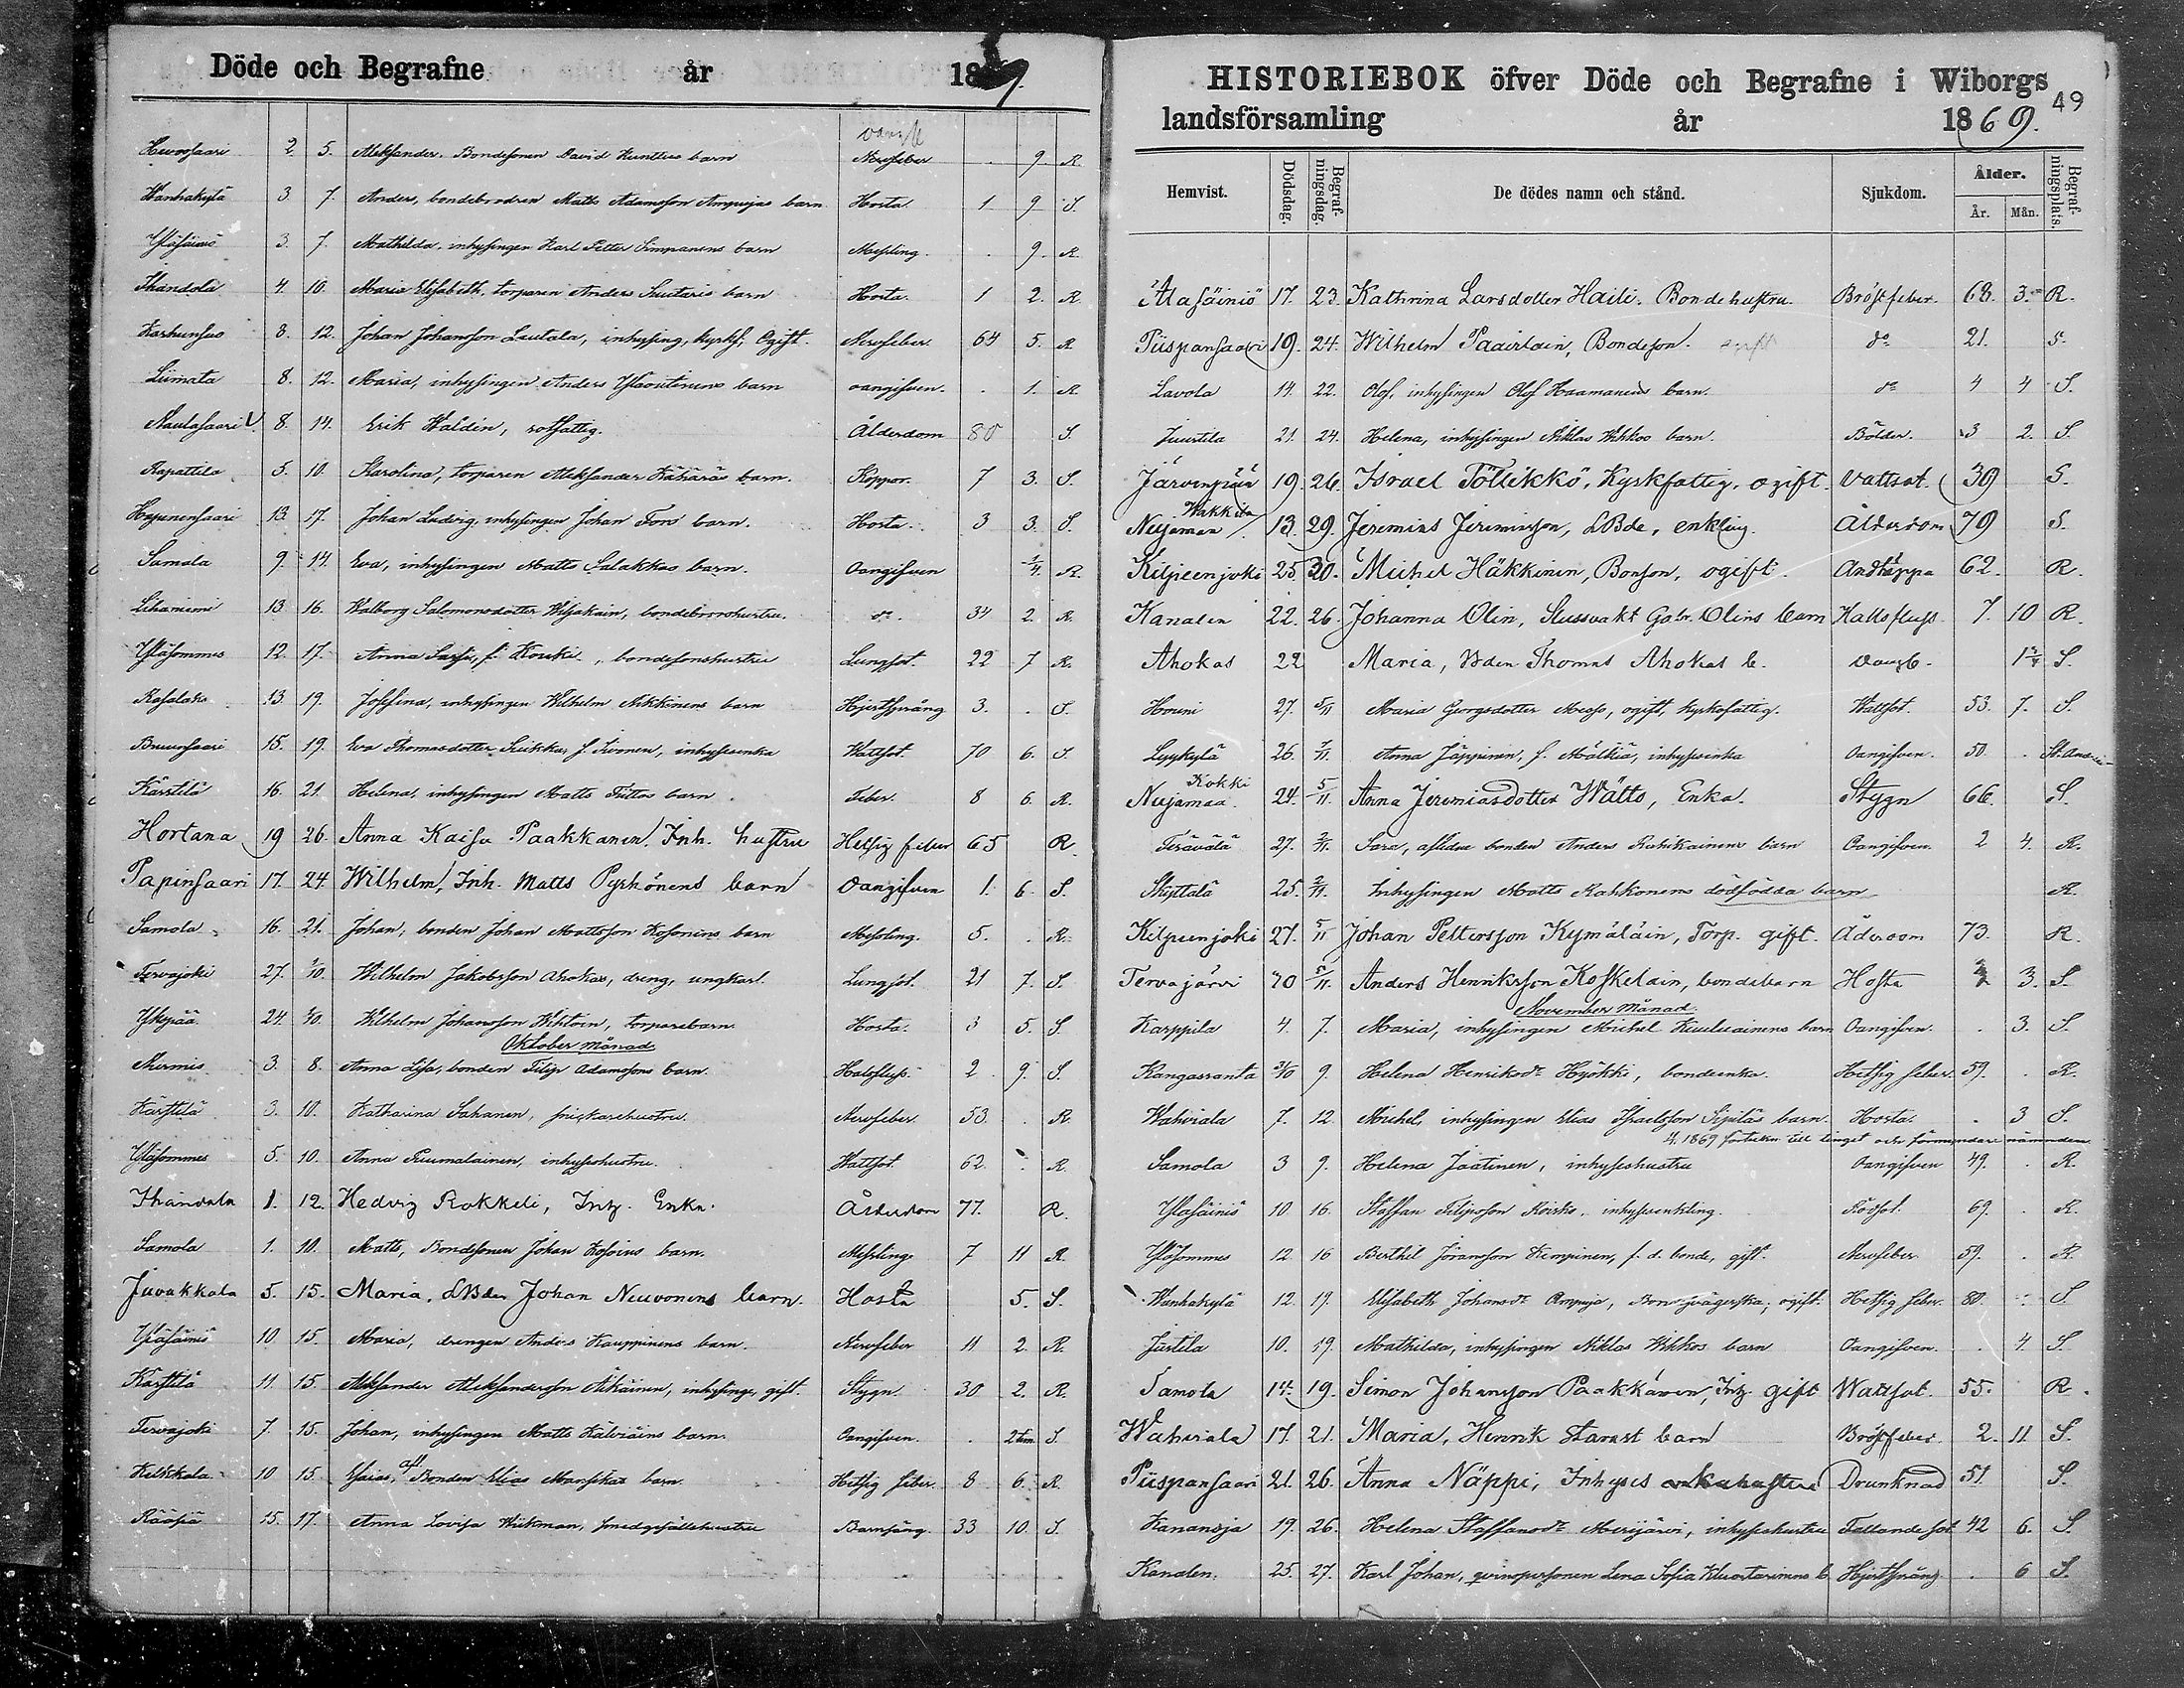 Döde och Begrafne år 1869.
vansk
Hevossaari 2. 5. Aleksander, Bondesonen David Kunttus barn Nervfeber . 9. R.
Wanhakylä 3. 7. Anders, bondebrodren Matts Adamsson Ampujas barn Hosta 1 9 S.
Yläsäiniö 3. 7. Mathilda, inhysingen Karl Petter Simpanens barn Messling. . 9. R.
Ihandola 4. 10. Maria Elisabeth, torparen Anders Suutaris barn Hosta. 1 2. R.
Karhusuo 8. 12. Johan Johansson Lautala, inhysing, kyrkf, Ogift. Nervfeber. 64 5. R.
Liimata 8. 12. Maria, inhysingen Anders barn oangifven. . 1. R.
Naulasaari 8. 14. Erik Waldén, rotfattig. Ålderdom 80 S.
Rapattila 5. 10. Karolina, torparen Aleksander Kähäräs barn. Koppor. 7 3. S.
Hapenensaari 13. 17. Johan Ludvig, inhysingen Johan Fors barn. Hosta. 3 3. S.
Samola 9. 14. Eva, inhysingen Matts Salakkas barn. Oangifven 1/4. R.
Lihaniemi 13. 16. Walborg Salomonsdotter Wisakain, bondebrorshustru. do. 34 2. R.
Yläsommes 12. 17. Anna Sarju, f. Kouki, bondesonshustru Lungsot. 22 7 R.
Rasalaks 13. 19. Josefina, inhysingen Wilhelm Nikkinens barn Hjertsprång 3. . S.
15. 19. Eva Thomasdotter Suikkar, f. Sivonen, inhysesenka Wattsot. 70 6. S.
Kärstilä 16. 21. Helena, inhysingen Matts Tuttos barn. Feber. 8 6. R.
Hortana 19 26. Anna Kaisa Paakkanen, Inh. hustru Hetsig feber 65 R.
Papinsaari 17. 24. Wilhelm, Inh. Matts Pyrhönens barn Oangifven 1. 6. S.
Samola 16. 21. Johan, bonden Johan Mattsson Kosonens barn Messling. 5. . R.
Tervajoki 27. 1/10. Wilhelm Jakobsson Ahokas, dreng, ungkarl. Lungsot. 21 7. S.
Yskijää 24. Wilhelm Johansson torparebarn Hosta. 3 5. S.
Oktober månad
Nurmis 3. 8. Anna Lisa, bonden Filip Adamssons barn. Halsfluss. 2 9. S.
Kärstilä 3. 10. Katharina Sahanen, snickarehustru. Nervfeber. 53. . R.
Yläsommes 5. 10. Anna Puumalainen, inhyseshustru. Wattsot. 62. . R.
Ihandala 1. 12. Hedvig Rokkeli, Inh. Enka. Ålderdom 77. R.
Samola 1. 10. Matts, Bondesonen Johan Kosoins barn. Messling 7 11 R.
Juvakkala 5. 15. Maria, LBden Johan Neuvonens barn. Hosta 5. S.
Yläsäiniö 10 15. Maria, drengen Anders Kauppinens barn. Nervfeber 11 2. R.
Kärstilä 11. 15. Aleksander Aleksandersson Äikäinen, inhysinge, gift. Stygn. 30 2. R.
Tervajoki 7. 15. Johan, inhysingen Matts Kälviäins barn. Oangifven. . 2 tim S.
Kilkkala 10 15. Esaias, afl Bonden Elias Mansikas barn Hetsig feber 8 6. R.
Rääpiä 15. 17. Anna Lovisa Wiikman, smedgesällshustru Barnsäng. 33 10. S.
HISTORIEBOK öfver Döde och Begrafne i Wiborgs
49
landsförsamling år 1869.
Hemvist. Dödsdag. Begrafningsdag. De dödes namn och stånd. Sjukdom. Ålder. År. Mån. Begrafningsplats.
Alasäiniö 17. 23. Kathrina Larsdotter Haili. Bondehustru Bröstfeber. 68. 3. R.
Piispansaari 19. 24. Wilhelm Paairlain, Bondeson. ogift do 21. S.
Lavola 14. 22. Olof, inhysingen Olof Haamanens barn. do 4 4 S.
Juustila 21. 24. Helena, inhysingen Niklas Wikkos barn. Bölder. 3 2. S.
Järvenpää 19. 26. Israel Töllikkö, Kyrkfattig, ogift. Vattsot. 39 S.
Wakkila
Nuijamaa 13. 29. Jeremias Jeremiasson, LBde, enkling. Ålderdom 79 S.
Kilpeenjoki 25. 30. Michel Häkkinen, Bonson, ogift. Andtäppa 62. R.
Kanalen 22. 26. Johanna Olin, Slussvakt Gabr. Olins barn Hallsfluss 7. 10 R.
Ahokas 22 Maria, Bden Thomas Ahokas b. 1 3/4 S.
Houni 27. 5/11 Maria Georgsdotter ogift, kyrkofattig. Wattsot. 53. 7. S.
Lyykylä 26. 7/11. Anna Jäppinen, f. Mälkiä, inhysesenka Oangifven. 50. . St. Andreæ
Kokki
Nuijamaa 24. 5/11. Anna Jeremiasdotter Wätts, Enka. Stygn 66. S.
Terävälä 27. 2/11. Sara, aflidne bonden Anders Rahikainens barn Oangifven. 2 4. R.
Skyttälä 25. 2/11. Inhysingen Matts Kahkonens dödfödda barn R.
Kilpeenjoki 27. 5/11 Johan Pettersson Kymäläin, Torp. gift. Åderdom 73. R.
Tervajärvi 20 5/11. Anders Henriksson Koskelain, bondebarn Hosta 3. S.
November månad
Karppila 4. 7. Maria, inhysingen Michel barn Oangifven. . 3. S.
Kangasranta 31/10 9. Helena Henriksdr Hyökki, bondeenka. Hetsig feber. 59. . R.
Wahviala 7. 12. Michel, inhysingen Elias Israelsson Sipiläs barn. Hosta. . 3 S.
4. 1869 till tinget och förmyndare nämnden
Samola 3 9. Helena Jaatinen, inhyseshustru Oangifven 49. . R.
Yläsäiniö 10. 16. Staffan Filipsson Roisko, inhysesenkling. Rödsot. 69. . R.
Yläsommes 12 16 Berthil Göransson Kempinen, f. d. bonde, gift. Nervfeber. 59. . R.
Wanhakylä 12. 19. Elisabeth Johansdr Ampuja, Bon svägerska, ogift. Hetsig feber. 80. . S.
Justila 10. 19. Mathilda, inhysingen Niklas Wikkos barn Oangifven. . 4. S.
Samola 14. 19. Simon Johansson Paakkänen, Inh. gift Wattsot. 55. R.
Wahviala 17. 21. Maria, Henrik Starast barn Bröstfeber. 2. 11 S.
Piispansaari 21. 26. Anna Näppi, Inhyses hustru Drunknad 51. S.
Kananoja 19. 26. Helena Staffansdr Merijärvi, inhyseshustru Fallandesot 42 6. S.
Kanalen 25. 27. Karl Johan, qvinspersonen Lena Sofia b. Hjertsprång . 6 S.